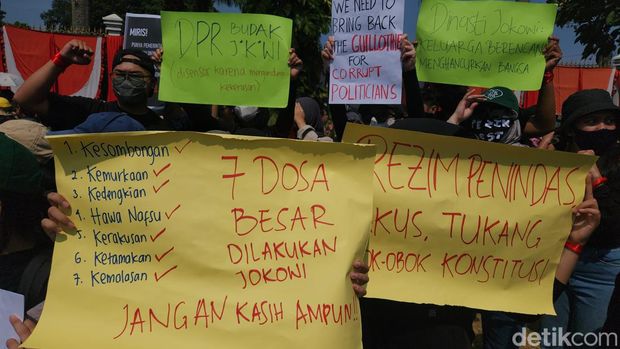 MIRIS!
PUNYA PEMERIN
DPR BUDAK
J*K*W*
(disensor karena mengandung
kekerasan)
WE NEED TO
BRING BACK
THE GUILLOTINE
FOR
CORRUPT
POLITICIANS
Dinasti Jokowi:
KELUARGA BERENCANA
MENGHANCURKAN BANGSA
1. Kesombongan ✓
2. Kemurkaan ✓
3. Kedengkian ✓
4. Hawa Nafsu ✓
5. Kerakusan ✓
6. Ketamakan ✓
7. Kemalasan ✓
7 DOSA
BESAR
DILAKUKAN
JOKOWI
JANGAN KASIH AMPUN!!
REZIM PENINDAS,
KUS, TUKANG
K-OBOK KONSTITUSI
detikcom